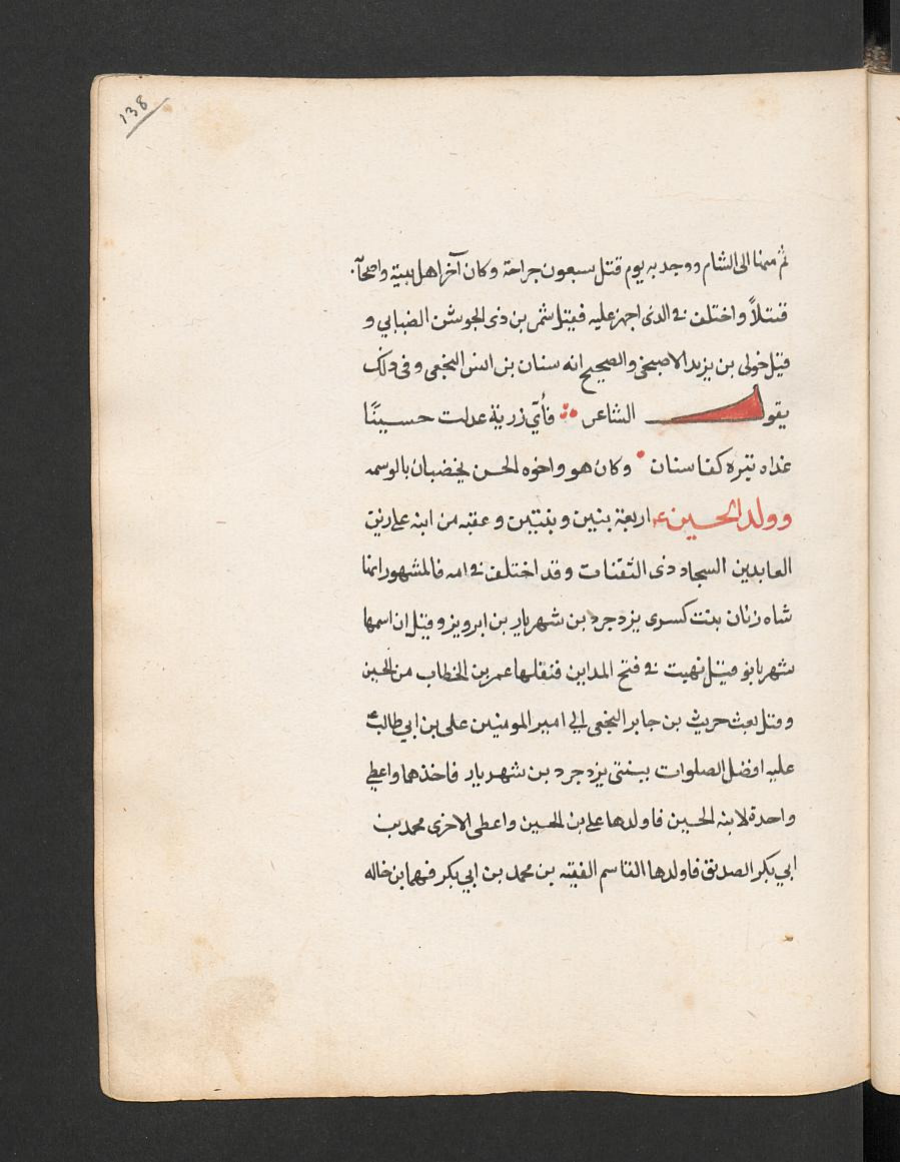 138
ثم منها الى الشام ووجد به يوم قتل سبعون جراحة وكان آخر اهل بيته واصحآ.
قتلاً واختلف في الذى اجهز عليه فقيل شمر بن ذى الجوشن الضبابي و
قيل خولى بن يزيد الاصبحى والصحيح انه سنان بن انس النخعى وفى ذلك
يقول الشاعر فأىّ زرية عدلت حسينًا
غداه تبيره كفا سنان وكان هو واخوه الحسن يخضبان بالوسمه
وولد الحسين ع اربعة بنين وبنتين وعقبه من ابنه على زين
العابدين السجاد ذى الثفنات وقد اختلف في امه فالمشهور انها
شاه زنان بنت كسرى يزدجرد بن شهريار بن ابرويز وقيل ان اسمها
شهربانو قيل نهبت في فتح المداين فنفلها عمر بن الخطاب من الحسين
وقيل بعث حريث بن جابر النخعى الى امير المومنين على بن ابي طالب ع
عليه افضل الصلوات ببنتى يزدجرد بن شهريار فاخذهما واعطى
واحدة لابنه الحسين فاولدها على بن الحسين واعطى الاخرى محمد بن
ابي بكر الصديق فاولدها القاسم الفقيه بن محمد بن ابي بكر فهما ابن خاله